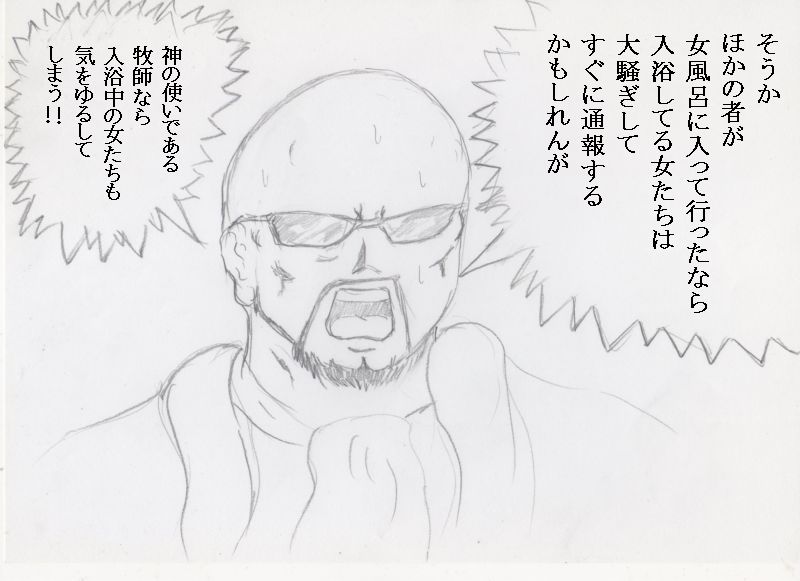 そうか
ほかの者が
女風呂に入って行ったなら
入浴してる女たちは
大騒ぎして
すぐに通報する
かもしれんが
神の使いである
牧師なら
入浴中の女たちも
気をゆるして
しまう!!